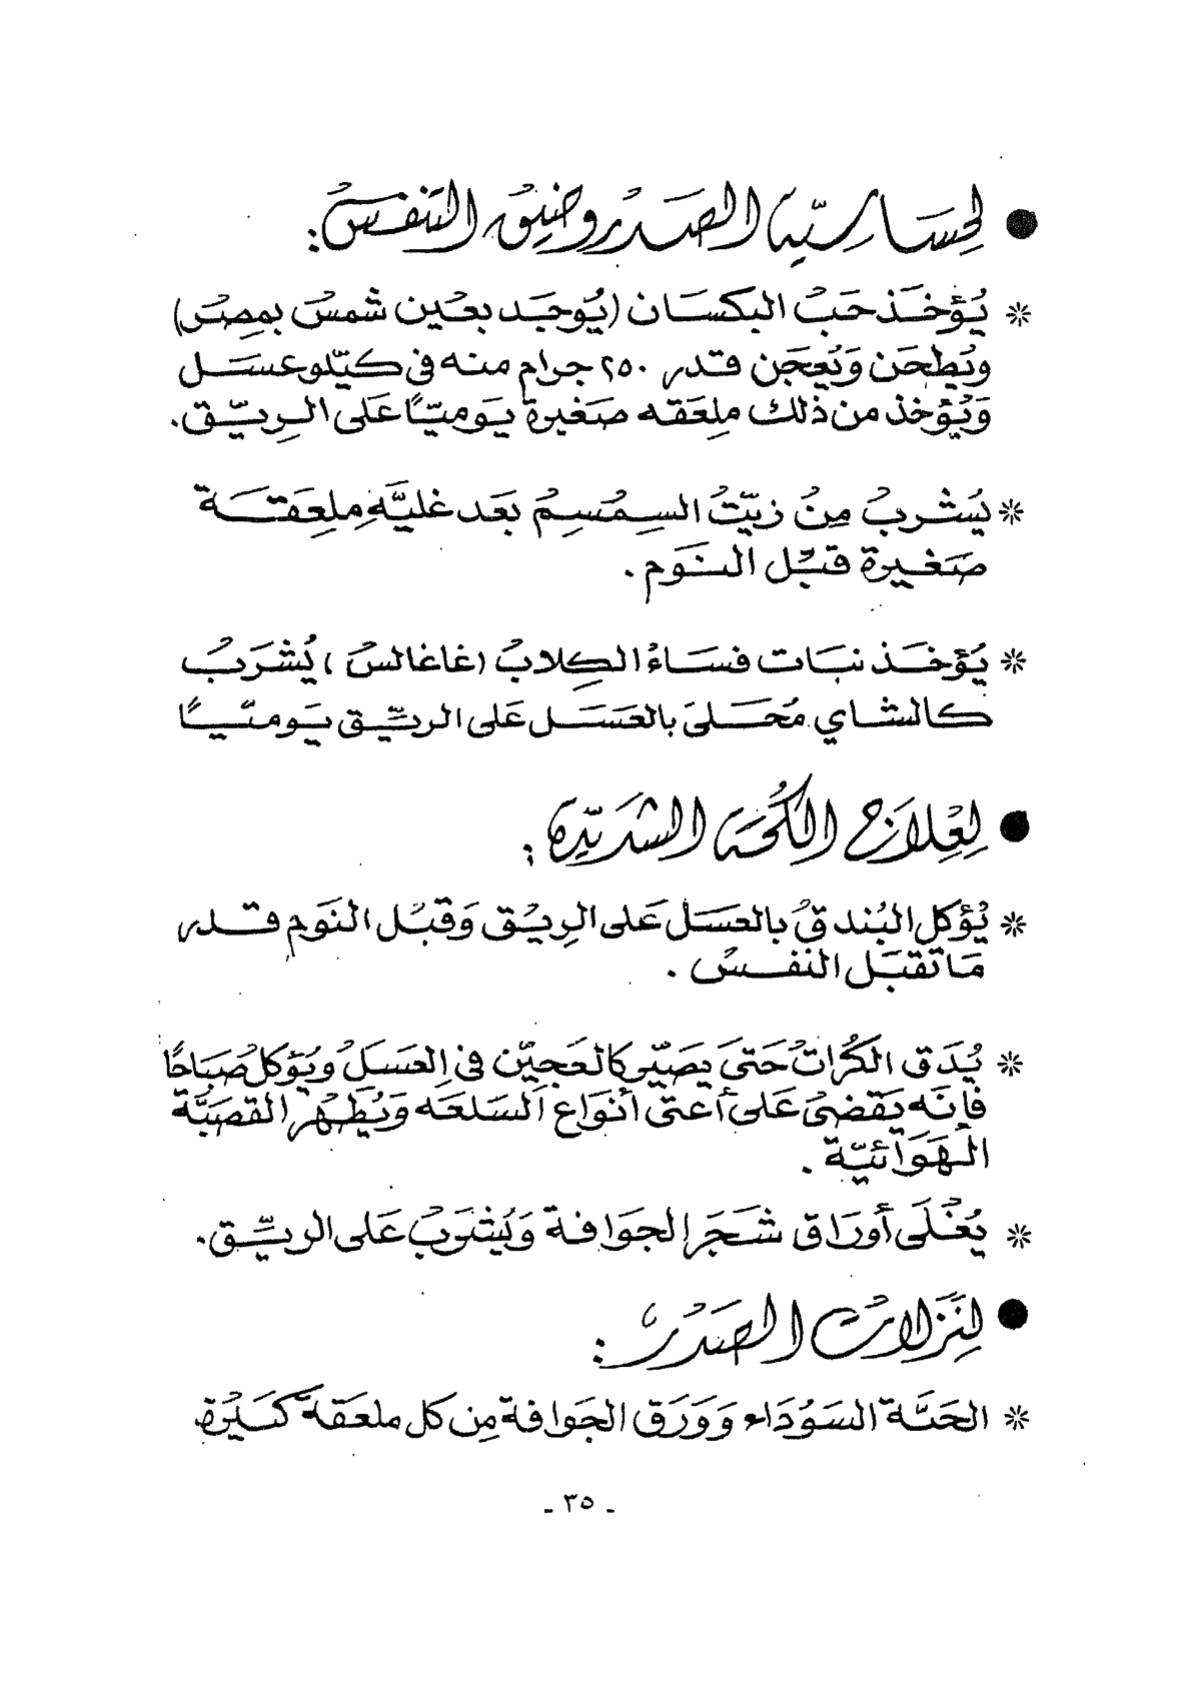 ● لحساسية الصدر وضيق التنفس :
* يُؤخَذ حَبُ البكسَان (يُوجَد بعين شمسْ بمصر)
ويُطحَن وَيُعجَن قدر ٢٥٠ جرام منه فى كيّلو عسَل
وَيُؤخذ من ذلك ملِعَقه صَغيرة يَوميّاً عَلى الرِيّق .
* يُشربُ مِنْ زيّتُ السِمْسِمُ بَعَد غليَّهِ مِلِعَقَة
صَغيرة قبْل النَوَم .
* يُؤخَذ نبَات فسَاءُ الكِلابُ (غاغالسْ) يُشرَبُ
كالشاي مُحَلىَ بالعَسَل عَلى الريّق يَوميّاً
● لِعِلاَج الكُحَة الشَديّدة :
* يُؤكل البُندقُ بالعسَل عَلى الرِيْق وَقبْل النَوَم قدر
مَا تقبَل النفسْ .
* يُدَق الكُرات حَتىَ يصَيّر كالعَجيّن فى العَسَلْ ويُؤكل صُبَاحاً
فإنَه يَقضىْ عَلى أعتى أنوَاع السَلعَه وَيُطَهْر القصَبَّة
الهَوَائيّة .
* يُغْلَى أورَاق شَجَر الجوَافة وَيُشرَبُ عَلى الريّق .
● لِنَزلات الصَدرْ :
* الحَبَّة السَوْدَاء وَوَرَق الجَوافة مِن كل ملعَقة كَبيْرة
- ٣٥ -